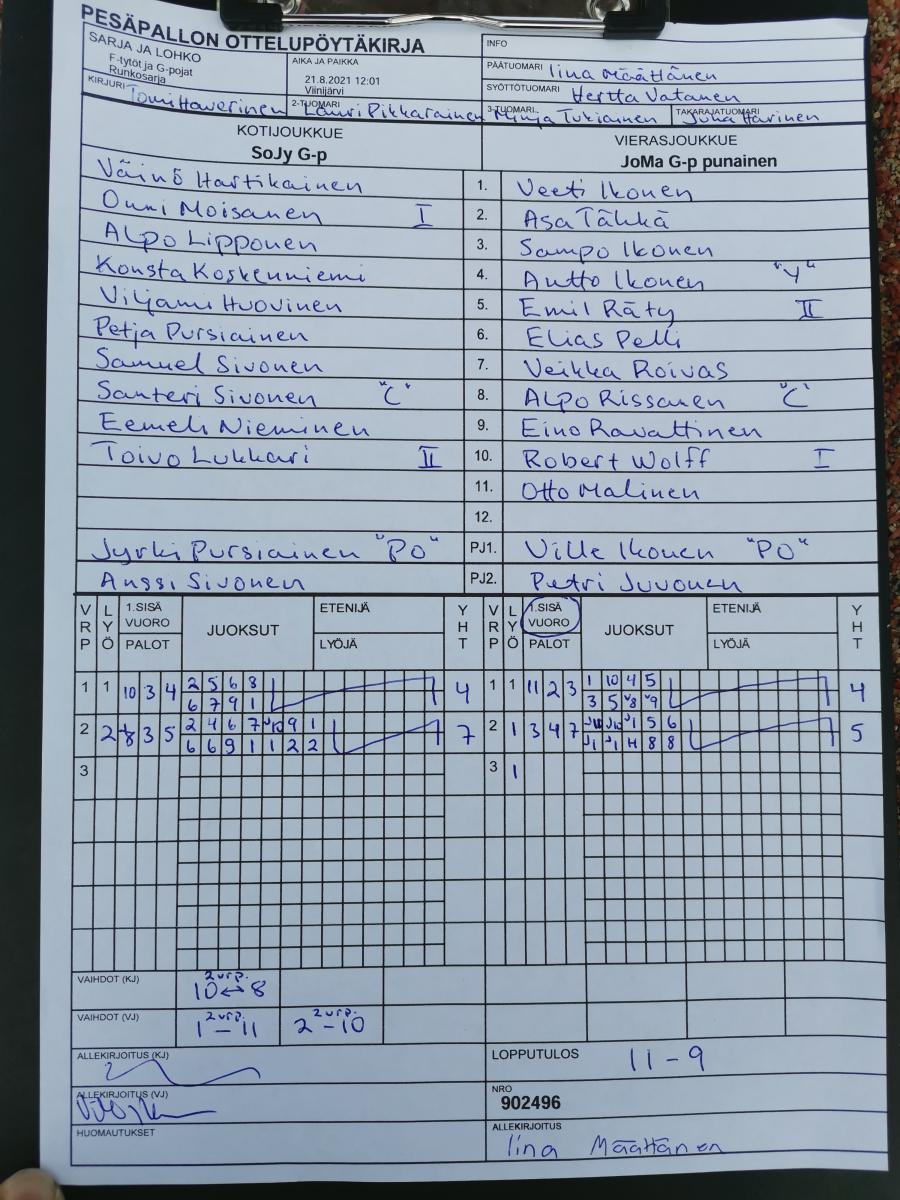 PESÄPALLON OTTELUPÖYTÄKIRJA
SARJA JA LOHKO
F-tytöt ja G-pojat
Runkosarja
AIKA JA PAIKKA
21.8.2021 12:01
Viinijärvi
INFO
PÄÄTUOMARI Iina Määttänen
SYÖTTÖTUOMARI Hertta Vatanen
KIRJURI Tomi Haverinen 2-TUOMARI Lauri Pikkarainen 3-TUOMARI Minja Tukiainen TAKARAJATUOMARI Juha Harinen
KOTIJOUKKUE VIERASJOUKKUE
SoJy G-p JoMa G-p punainen
Väinö Hartikainen 1. Veeti Ikonen
Onni Moisanen I 2. Asa Tähkä
Alpo Lipponen 3. Sampo Ikonen
Konsta Koskenniemi 4. Antto Ikonen "Y"
Viljami Huovinen 5. Emil Räty II
Petja Pursiainen 6. Elias Pelli
Samuel Sivonen 7. Veikka Roivas
Santeri Sivonen "C" 8. Alpo Rissanen "C"
Eemeli Nieminen 9. Eino Ravattinen
Toivo Lukkari II 10. Robert Wolff I
11. Otto Malinen
12.
Jyrki Pursiainen "PO" PJ1. Ville Ikonen "PO"
Anssi Sivonen PJ2. Petri Juvonen
VRP LYÖ 1.SISÄ VUORO PALOT JUOKSUT ETENIJÄ LYÖJÄ YHT VRP LYÖ 1.SISÄ VUORO PALOT JUOKSUT ETENIJÄ LYÖJÄ YHT
1 1 10 3 4 2 5 6 8 4 1 1 11 2 3 1 10 4 5 4
6 7 9 1 3 5 8 9
2 2 8 3 5 2 4 6 7 10 9 1 7 2 1 3 4 7 1 5 6 5
6 6 9 1 1 2 2 8 8
3 3 1
VAIHDOT (KJ) 2 vrp. 10↔8
VAIHDOT (VJ) 2 vrp. 1–11 2 vrp. 2–10
ALLEKIRJOITUS (KJ)
LOPPUTULOS 11–9
ALLEKIRJOITUS (VJ)
NRO
902496
HUOMAUTUKSET
ALLEKIRJOITUS
Iina Määttänen